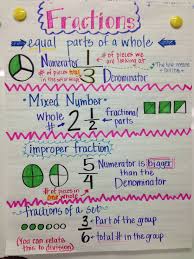 Fractions
equal parts of a whole
Numerator 1 # of pieces we are looking at
# of pieces total in the whole 3 Denominator
The line means division
Mixed Number
Whole # 2 1/2 fractional parts
improper fraction
5/4 Numerator is bigger than the Denominator
# of pieces in one whole
fractions of a set
3 → Part of the group
6 → total # in the group
(You can relate this to division)